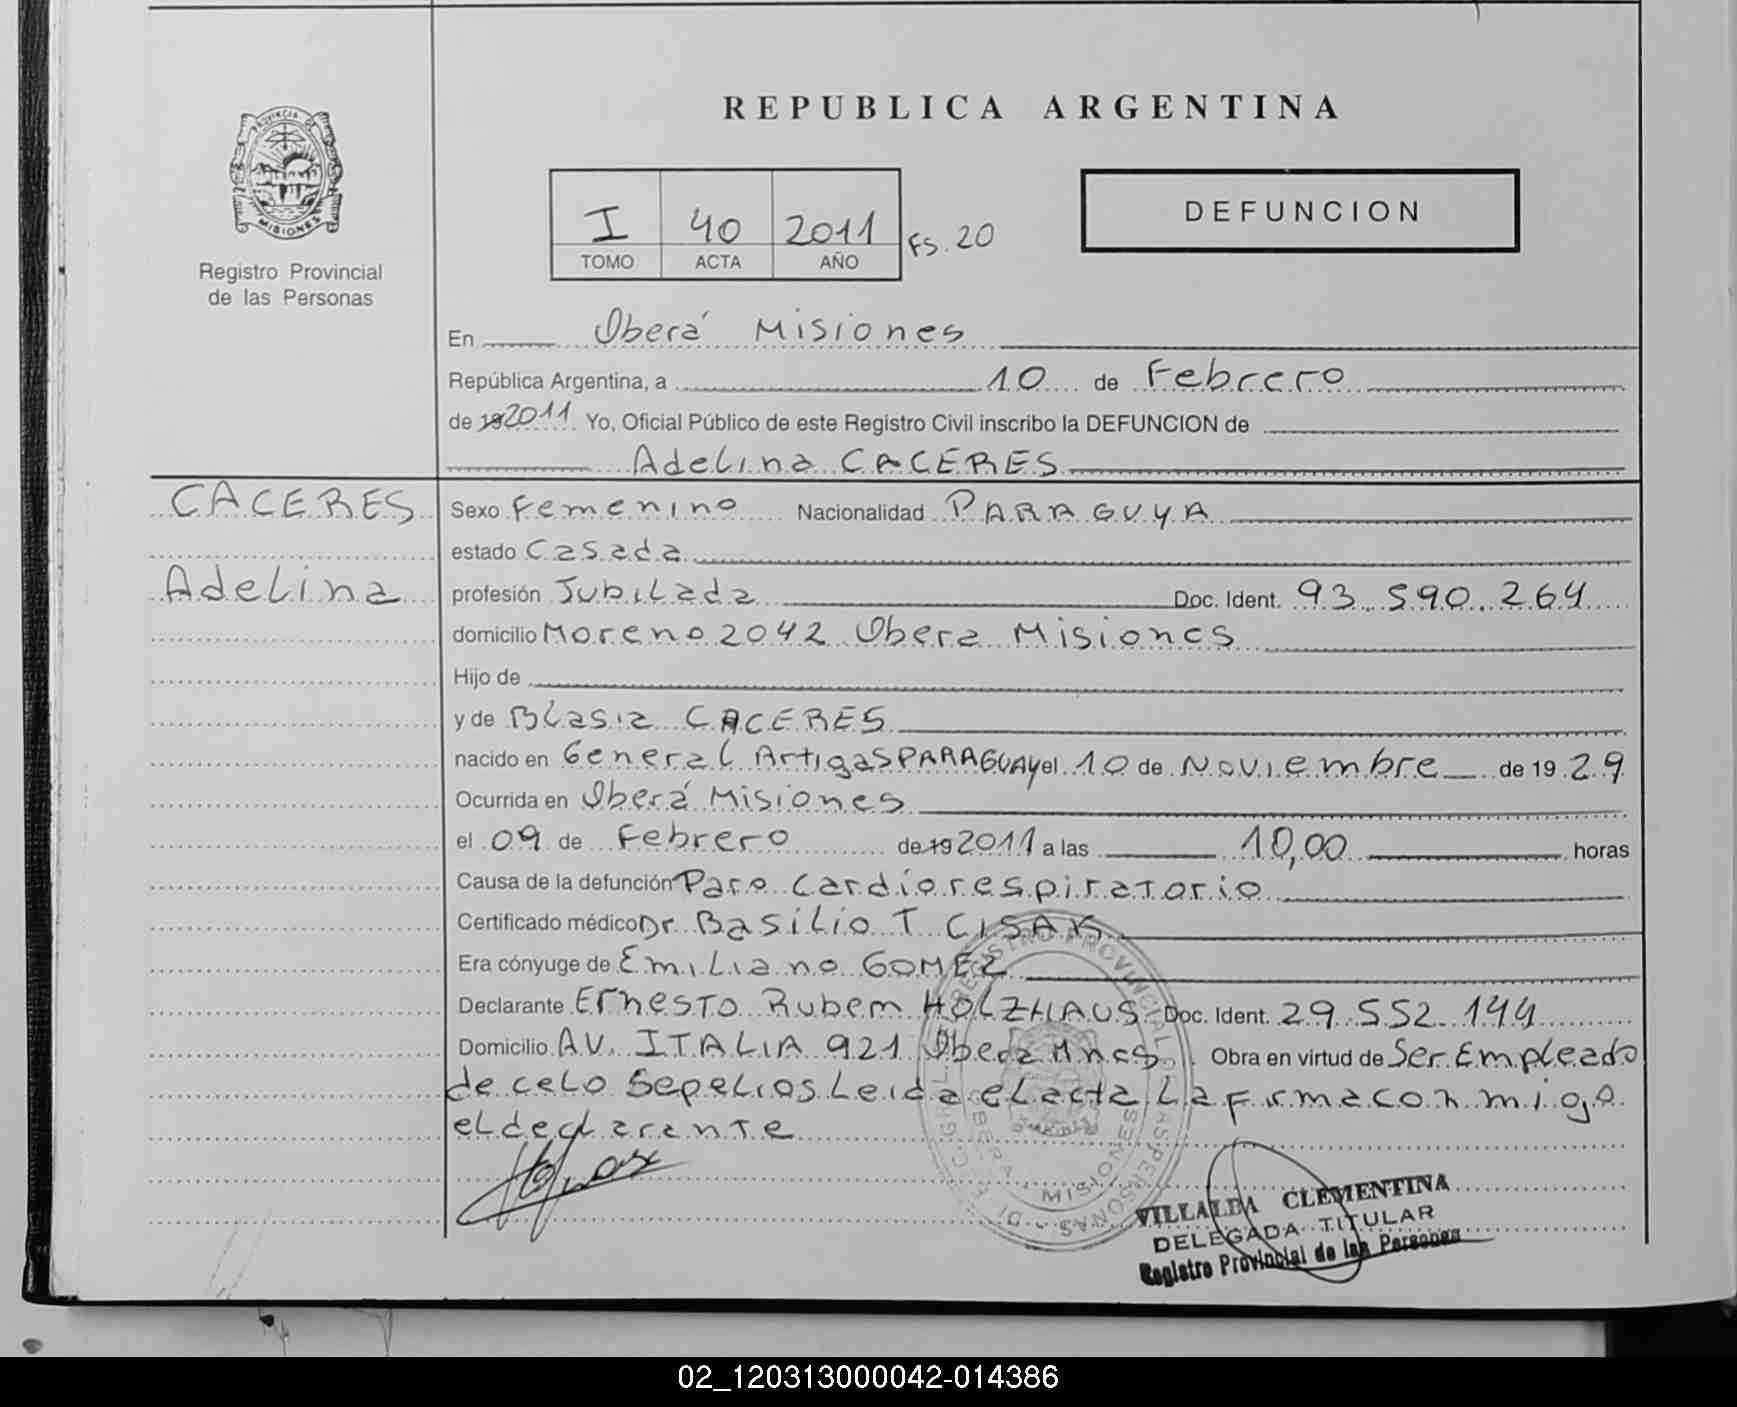 REPUBLICA ARGENTINA
PROVINCIA DE
MISIONES
Registro Provincial
de las Personas
I 40 2011 FS. 20
TOMO ACTA AÑO
DEFUNCION
En Oberá Misiones
República Argentina, a 10 de Febrero
de 19 2011 Yo, Oficial Público de este Registro Civil inscribo la DEFUNCION de
Adelina CACERES
CACERES
Adelina
Sexo Femenino Nacionalidad PARAGUYA
estado Casada
profesión Jubilada Doc. Ident. 93.590.264
domicilio Moreno 2042 Obera Misiones
Hijo de
y de Blasia CACERES
nacido en General Artigas PARAGUAY el 10 de Noviembre de 19 29
Ocurrida en Oberá Misiones
el 09 de Febrero de 19 2011 a las 10,00 horas
Causa de la defunción Paro Cardiorespiratorio
Certificado médico Dr. Basilio T CISAK
Era cónyuge de Emiliano GOMEZ
Declarante Ernesto Rubem HOLZHAUS Doc. Ident. 29.552.144
Domicilio AV. ITALIA 921 Obera Mnes Obra en virtud de Ser Empleado
de celo Sepelios Leida el acta La firma conmigo
el declarante
REGISTRO PROVINCIAL DE LAS PERSONAS
MISIONES
VILLALBA CLEMENTINA
DELEGADA TITULAR
Registro Provincial de las Personas
02_120313000042-014386